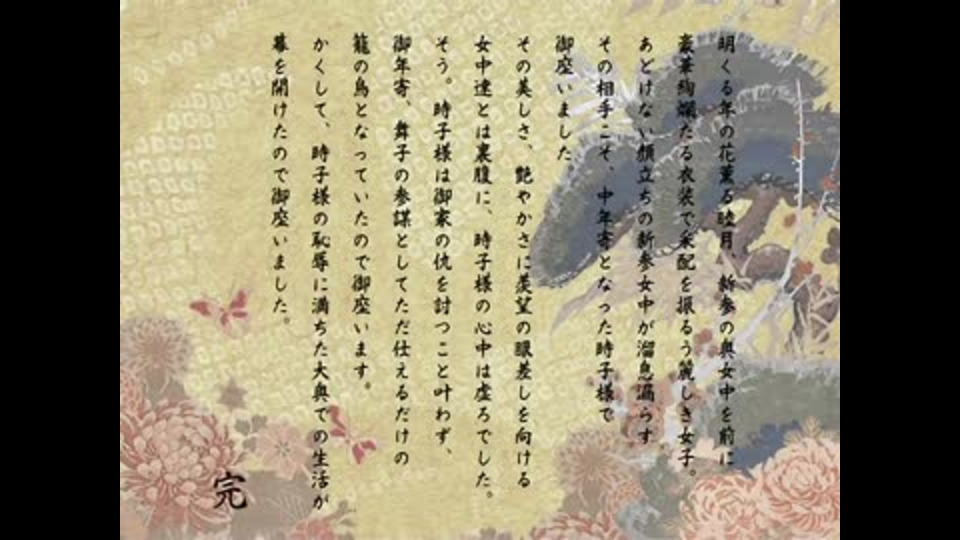 明くる年の花薫る睦月、新参の奥女中を前に
豪華絢爛たる衣装で采配を振るう麗しき女子。
あどけない顔立ちの新参女中が溜息漏らす
その相手こそ、中年寄となった時子様で
御座いました
その美しさ、艶やかさに羨望の眼差しを向ける
女中達とは裏腹に、時子様の心中は虚ろでした。
そう。時子様は御家の仇を討つこと叶わず、
御年寄、舞子の参謀としてただ仕えるだけの
籠の鳥となっていたので御座います。
かくして、時子様の恥辱に満ちた大奥での生活が
幕を開けたので御座いました。
完